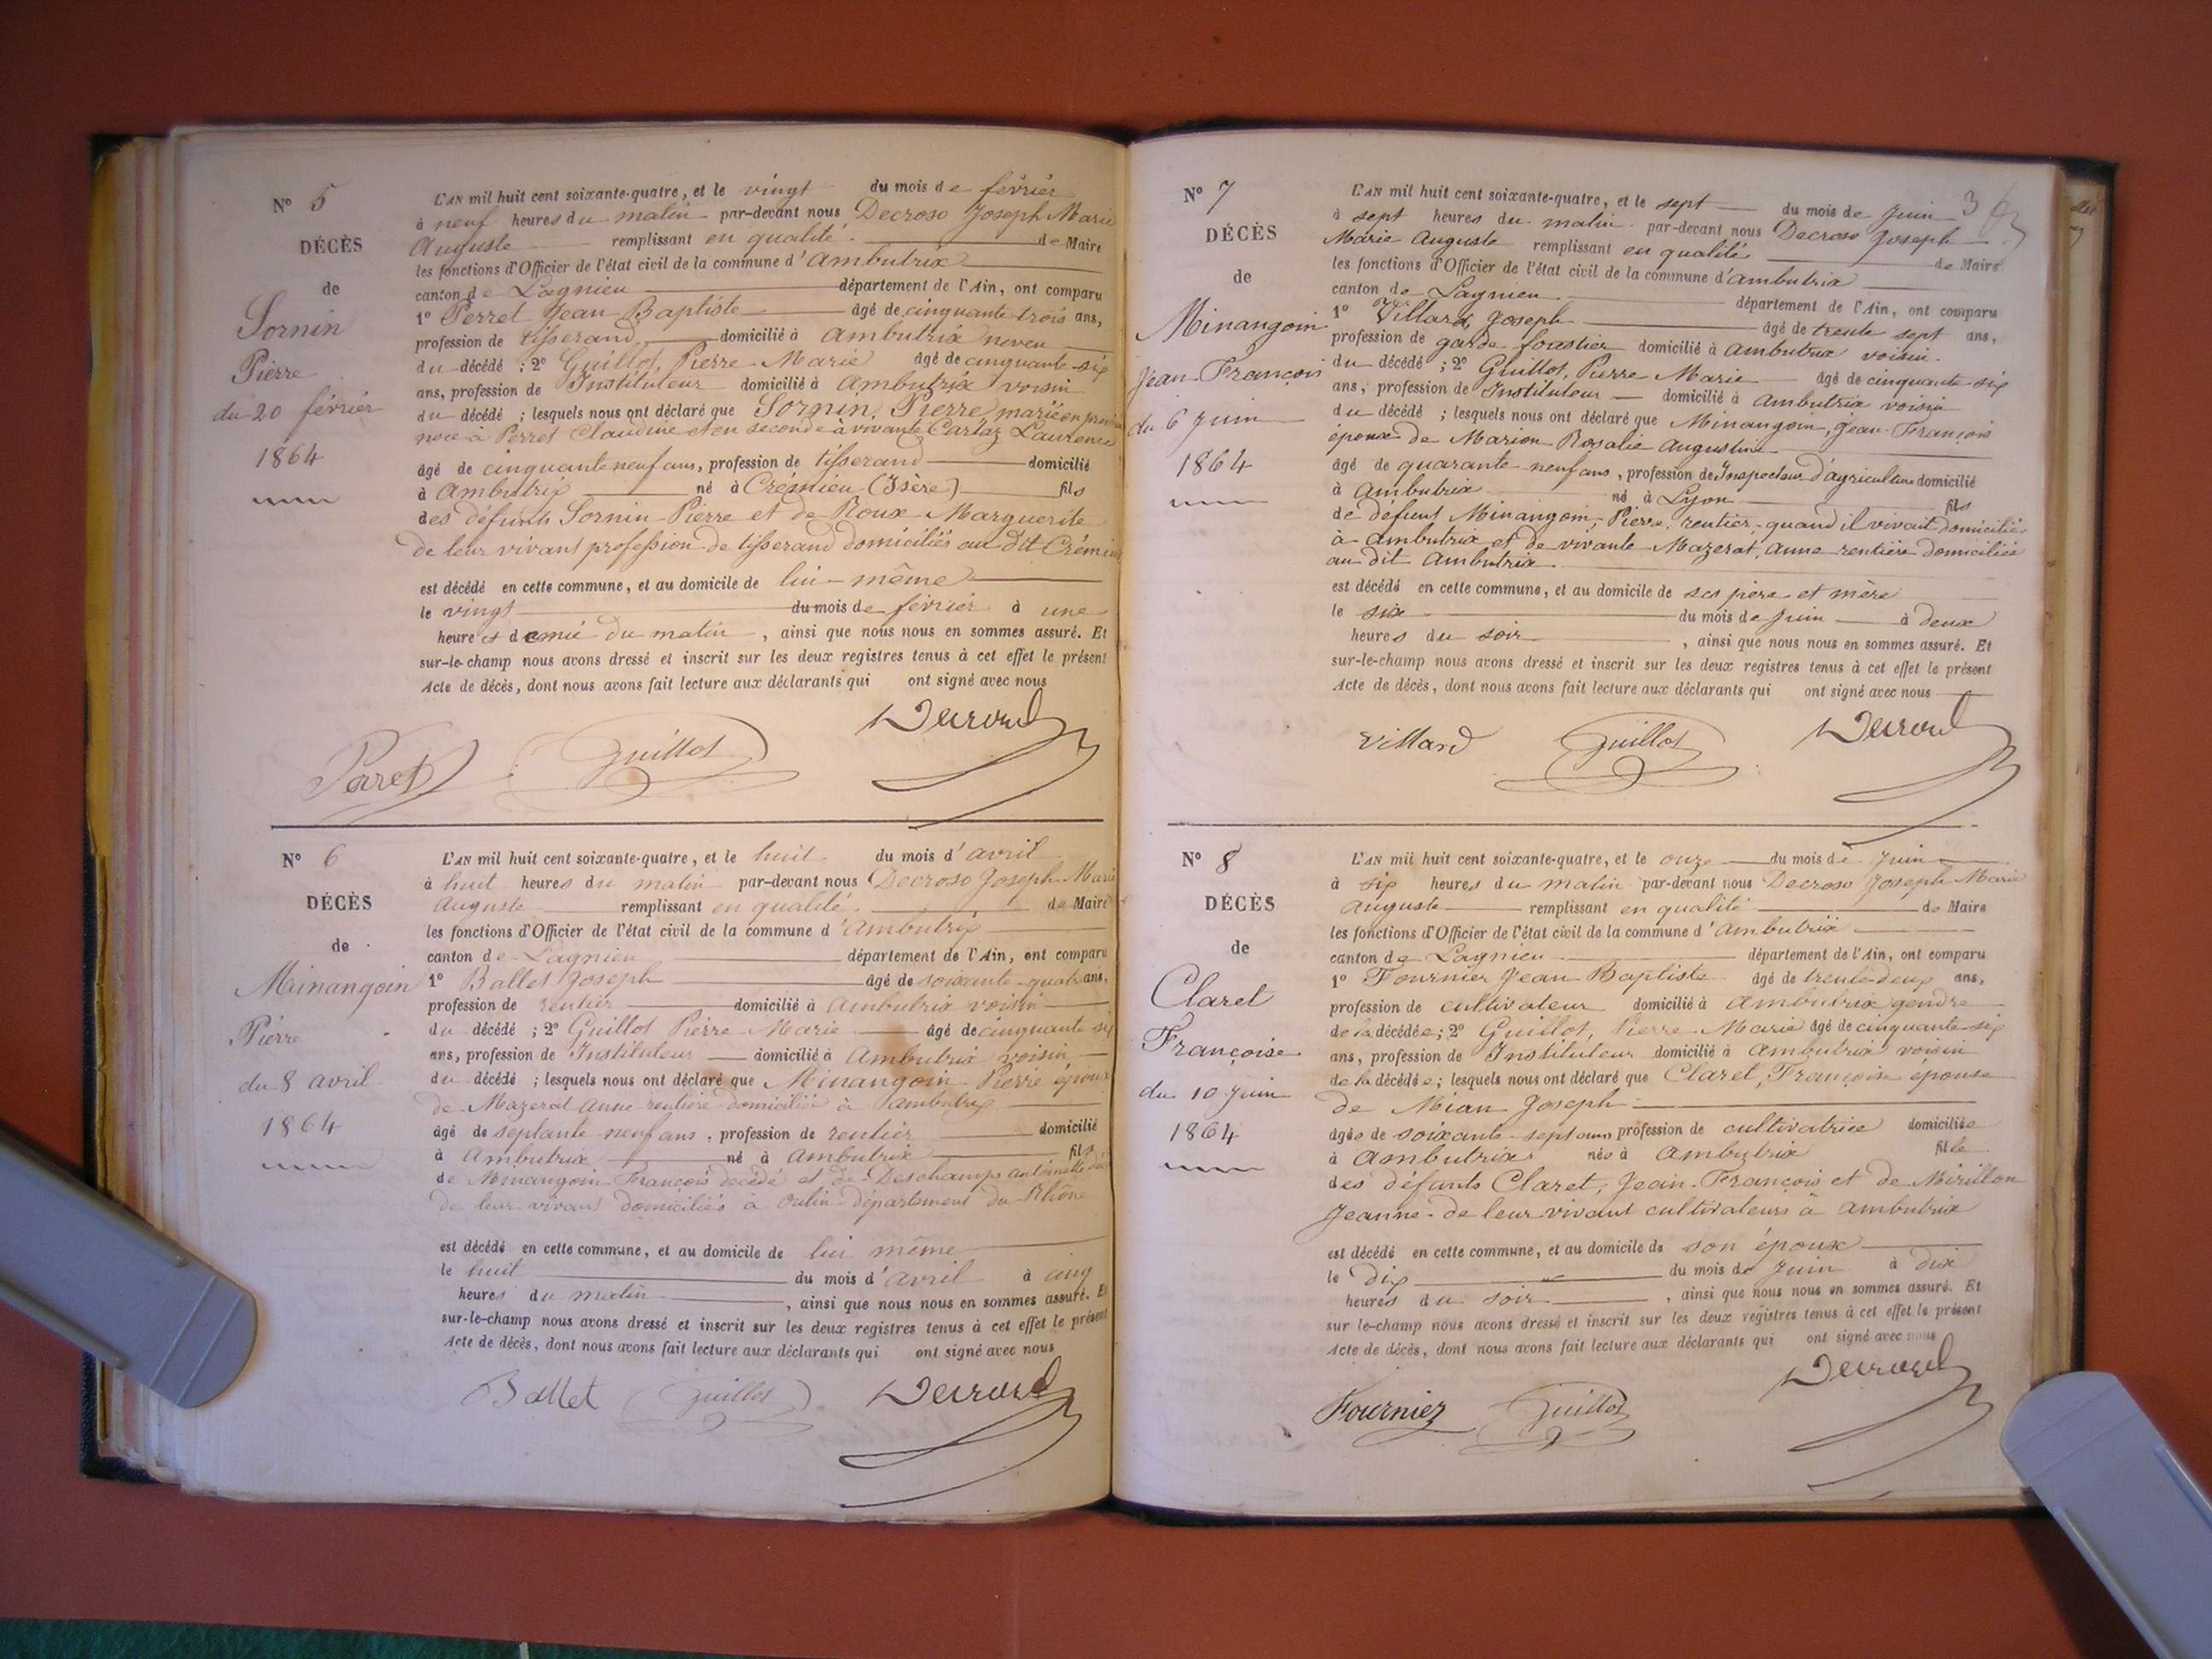 N° 5
DÉCÈS
de
Sornin
Pierre
du 20 février
1864
L'AN mil huit cent soixante-quatre, et le vingt du mois de février
à neuf heures du matin par-devant nous Decroso Joseph Marie
Auguste remplissant en qualité de Maire
les fonctions d'Officier de l'état civil de la commune d'Ambutrix
canton de Lagnieu département de l'Ain, ont comparu
1° Perret Jean Baptiste âgé de cinquante trois ans,
profession de tisserand domicilié à Ambutrix neveu
du décédé ; 2° Guillot, Pierre Marie âgé de cinquante six
ans, profession de Instituteur domicilié à Ambutrix voisin
du décédé ; lesquels nous ont déclaré que Sornin, Pierre, marié en
noce à Perret Claudine et en seconde à vivante Cartaz Laurence
âgé de cinquante neuf ans, profession de tisserand domicilié
à Ambutrix né à Crémieu (Isère) fils
des défunts Sornin Pierre et de Roux Marguerite
de leur vivant profession de tisserand domiciliés au dit Crémieu
est décédé en cette commune, et au domicile de lui-même
le vingt du mois de février à une
heure et demie du matin, ainsi que nous nous en sommes assuré. Et
sur-le-champ nous avons dressé et inscrit sur les deux registres tenus à cet effet le présent
Acte de décès, dont nous avons fait lecture aux déclarants qui ont signé avec nous
Guillot
N° 6
DÉCÈS
de
Minangoin
Pierre
du 8 avril
1864
L'AN mil huit cent soixante-quatre, et le huit du mois d'avril
à huit heures du matin par-devant nous Decroso Joseph Marie
Auguste remplissant en qualité de Maire
les fonctions d'Officier de l'état civil de la commune d'Ambutrix
canton de Lagnieu département de l'Ain, ont comparu
1° Ballet Joseph âgé de soixante-quatre ans,
profession de rentier domicilié à Ambutrix voisin
du décédé ; 2° Guillot Pierre Marie âgé de cinquante six
ans, profession de Instituteur domicilié à Ambutrix voisin
du décédé ; lesquels nous ont déclaré que Minangoin Pierre époux
de Mazerat Anne rentière domiciliée à Ambutrix
âgé de septante neuf ans, profession de rentier domicilié
à Ambutrix né à Ambutrix fils
de Minangoin François décédé et de Deschamps Antoinette
de leur vivant domiciliés à Oulin département du Rhône
est décédé en cette commune, et au domicile de lui même
le huit du mois d'avril à cinq
heures du matin, ainsi que nous nous en sommes assuré. Et
sur-le-champ nous avons dressé et inscrit sur les deux registres tenus à cet effet le présent
Acte de décès, dont nous avons fait lecture aux déclarants qui ont signé avec nous
Ballet Guillot
N° 7
DÉCÈS
de
Minangoin
Jean-François
du 6 Juin
1864
L'AN mil huit cent soixante-quatre, et le sept du mois de Juin
à sept heures du matin par-devant nous Decroso Joseph
Marie Auguste remplissant en qualité de Maire
les fonctions d'Officier de l'état civil de la commune d'Ambutrix
canton de Lagnieu département de l'Ain, ont comparu
1° Villard, Joseph âgé de trente sept ans,
profession de garde forestier domicilié à Ambutrix voisin
du décédé ; 2° Guillot, Pierre Marie âgé de cinquante six
ans, profession de Instituteur domicilié à Ambutrix voisin
du décédé ; lesquels nous ont déclaré que Minangoin, Jean-François
époux de Marion Rosalie Augustine
âgé de quarante-neuf ans, profession de Inspecteur d'agriculture domicilié
à Ambutrix né à Lyon fils
de défunt Minangoin, Pierre, rentier, quand il vivait domicilié
à Ambutrix et de vivante Mazerat, Anne rentière domiciliée
au dit Ambutrix
est décédé en cette commune, et au domicile de ses père et mère
le six du mois de Juin à deux
heures du soir, ainsi que nous nous en sommes assuré. Et
sur-le-champ nous avons dressé et inscrit sur les deux registres tenus à cet effet le présent
Acte de décès, dont nous avons fait lecture aux déclarants qui ont signé avec nous
Villard Guillot
N° 8
DÉCÈS
de
Claret
Françoise
du 10 Juin
1864
L'AN mil huit cent soixante-quatre, et le onze du mois de Juin
à six heures du matin par-devant nous Decroso Joseph Marie
Auguste remplissant en qualité de Maire
les fonctions d'Officier de l'état civil de la commune d'Ambutrix
canton de Lagnieu département de l'Ain, ont comparu
1° Fournier Jean Baptiste âgé de trente-deux ans,
profession de cultivateur domicilié à Ambutrix gendre
de la décédée ; 2° Guillot, Pierre Marie âgé de cinquante-six
ans, profession de Instituteur domicilié à Ambutrix voisin
de la décédée ; lesquels nous ont déclaré que Claret, Françoise épouse
de Mian Joseph
âgée de soixante-sept ans profession de cultivatrice domiciliée
à Ambutrix née à Ambutrix fille
des défunts Claret, Jean-François et de Mirillon
Jeanne de leur vivant cultivateurs à Ambutrix
est décédé en cette commune, et au domicile de son époux
le dix du mois de Juin à dix
heures du soir, ainsi que nous nous en sommes assuré. Et
sur le-champ nous avons dressé et inscrit sur les deux registres tenus à cet effet le présent
Acte de décès, dont nous avons fait lecture aux déclarants qui ont signé avec nous
Fournier Guillot